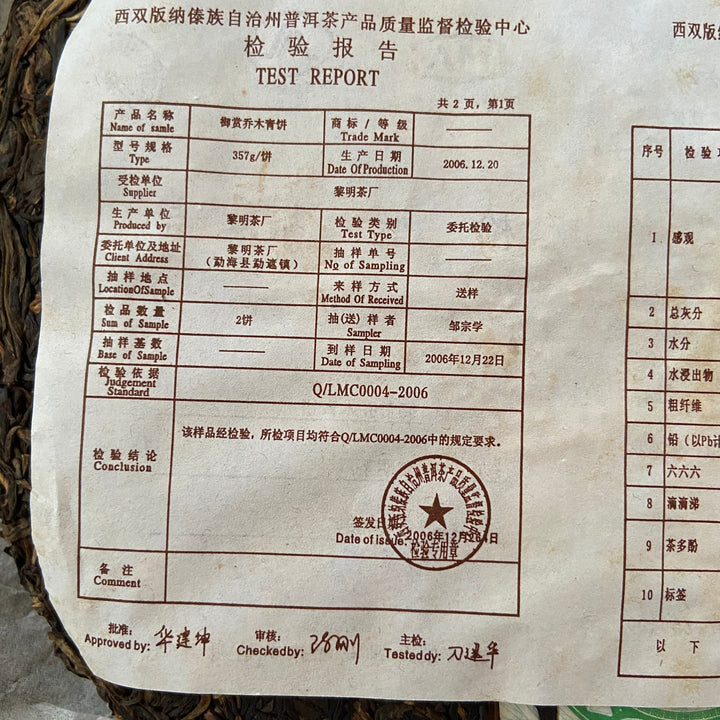 西双版纳傣族自治州普洱茶产品质量监督检验中心
检验报告
TEST REPORT
共 2 页，第1页
产品名称 御赏乔木青饼 商标/等级 ——
Name of samle Trade Mark
型号规格 357g/饼 生产日期 2006.12.20
Type Date Of Production
受检单位 黎明茶厂
Supplier
生产单位 黎明茶厂 检验类别 委托检验
Produced by Test Type
委托单位及地址 黎明茶厂 抽样单号 ——
Client Address （勐海县勐遮镇） No of Sampling
抽样地点 —— 来样方式 送样
LocationOfSample Method Of Received
检品数量 2饼 抽(送)样者 邹宗学
Sum of Sample Sampler
抽样基数 —— 到样日期 2006年12月22日
Base of Sample Date of Sampling
检验依据 Q/LMC0004-2006
Judgement
Standard
检验结论 该样品经检验，所检项目均符合Q/LMC0004-2006中的规定要求。
Conclusion
签发日
Date of issue: 2006年12月26日
西双版纳傣族自治州普洱茶产品质量监督检验中心
检验专用章
备注
Comment
批准: 审核: 主检:
Approved by: 华建坤 Checkedby: Testeddy: 刀建华
西双版纳
序号 检验
1 感观
2 总灰分
3 水分
4 水浸出物
5 粗纤维
6 铅（以Pb计
7 六六六
8 滴滴涕
9 茶多酚
10 标签
以下